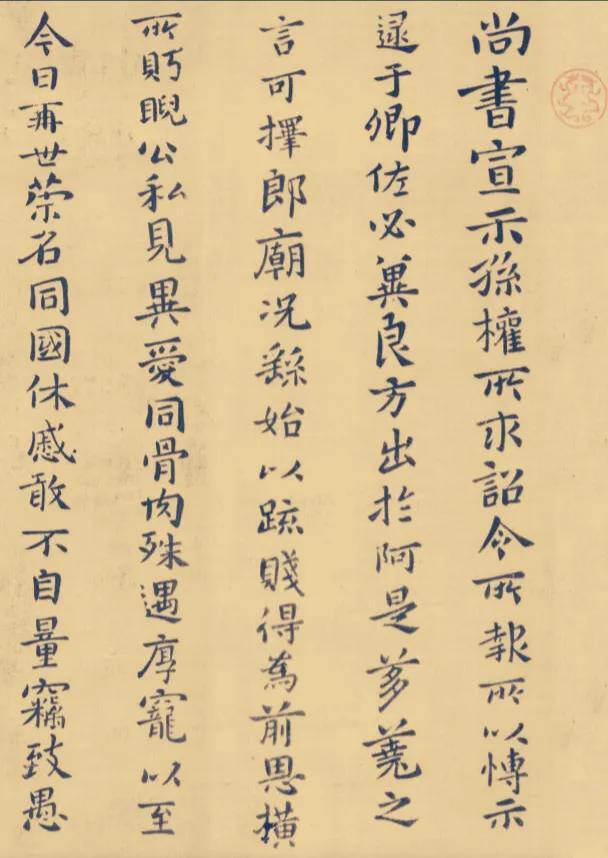 尚書宣示孫權所求詔令所報所以博示
逮于卿佐必冀良方出於阿是芻蕘之
言可擇郎廟況繇始以疏賤得為前恩橫
所眄睨公私見異愛同骨肉殊遇厚寵以至
今日再世榮名同國休慼敢不自量竊致愚